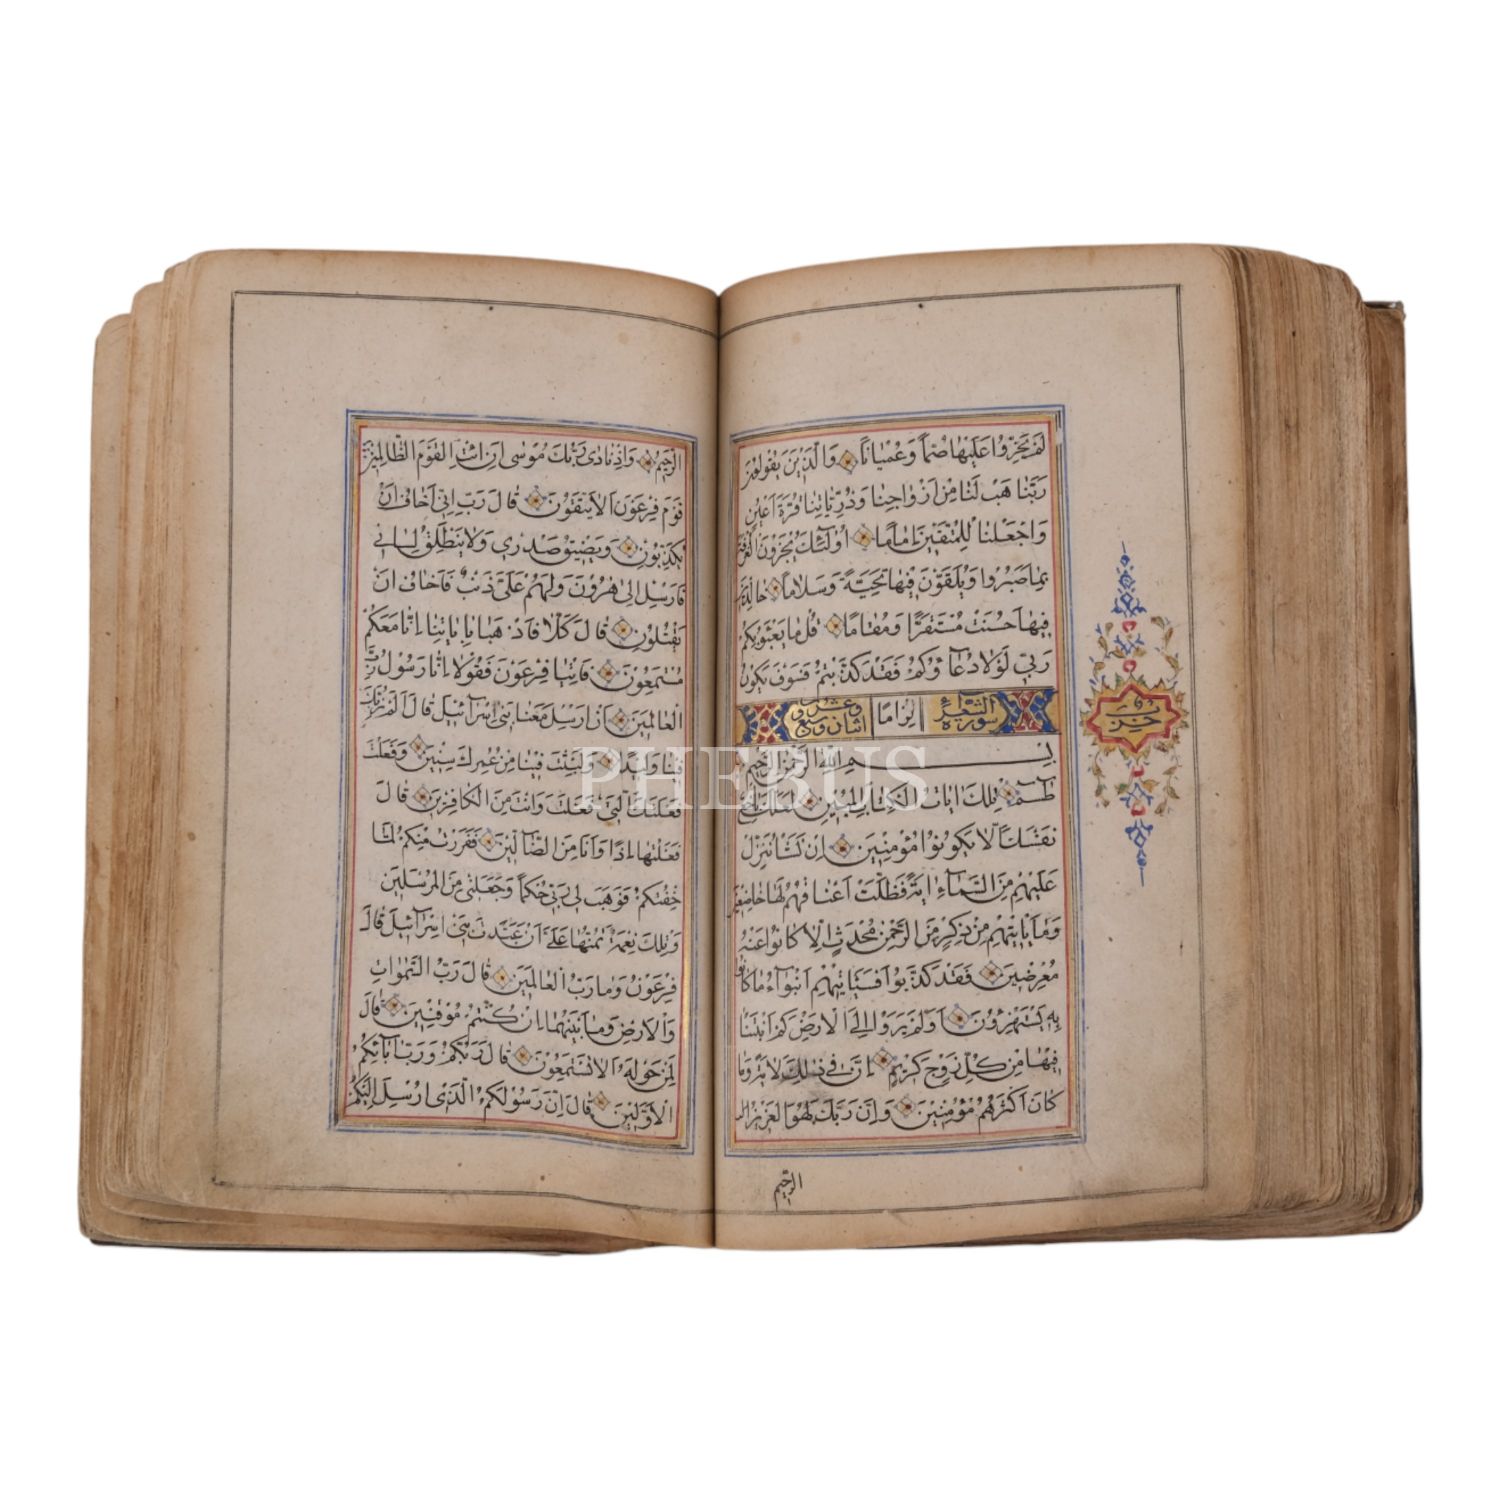 لَمْ يَخِرُّوا عَلَيْهَا صُمًّا وَعُمْيَانًا وَالَّذِينَ يَقُولُونَ
رَبَّنَا هَبْ لَنَا مِنْ أَزْوَاجِنَا وَذُرِّيَّاتِنَا قُرَّةَ أَعْيُنٍ
وَاجْعَلْنَا لِلْمُتَّقِينَ إِمَامًا أُولَٰئِكَ يُجْزَوْنَ الْغُرْفَةَ
بِمَا صَبَرُوا وَيُلَقَّوْنَ فِيهَا تَحِيَّةً وَسَلَامًا خَالِدِينَ
فِيهَا حَسُنَتْ مُسْتَقَرًّا وَمُقَامًا قُلْ مَا يَعْبَؤُا بِكُمْ
رَبِّي لَوْلَا دُعَاؤُكُمْ فَقَدْ كَذَّبْتُمْ فَسَوْفَ يَكُونُ
سورة الشعراء لِزَامًا
حزب
بِسْمِ اللَّهِ الرَّحْمَٰنِ الرَّحِيمِ
طسم تِلْكَ آيَاتُ الْكِتَابِ الْمُبِينِ لَعَلَّكَ بَاخِعٌ
نَفْسَكَ أَلَّا يَكُونُوا مُؤْمِنِينَ إِنْ نَشَأْ نُنَزِّلْ
عَلَيْهِمْ مِنَ السَّمَاءِ آيَةً فَظَلَّتْ أَعْنَاقُهُمْ لَهَا خَاضِعِينَ
وَمَا يَأْتِيهِمْ مِنْ ذِكْرٍ مِنَ الرَّحْمَٰنِ مُحْدَثٍ إِلَّا كَانُوا عَنْهُ
مُعْرِضِينَ فَقَدْ كَذَّبُوا فَسَيَأْتِيهِمْ أَنْبَاءُ مَا كَانُوا
بِهِ يَسْتَهْزِئُونَ أَوَلَمْ يَرَوْا إِلَى الْأَرْضِ كَمْ أَنْبَتْنَا
فِيهَا مِنْ كُلِّ زَوْجٍ كَرِيمٍ إِنَّ فِي ذَٰلِكَ لَآيَةً وَمَا
كَانَ أَكْثَرُهُمْ مُؤْمِنِينَ وَإِنَّ رَبَّكَ لَهُوَ الْعَزِيزُ
الرحيم
الرَّحِيمُ وَإِذْ نَادَىٰ رَبُّكَ مُوسَىٰ أَنِ ائْتِ الْقَوْمَ الظَّالِمِينَ
قَوْمَ فِرْعَوْنَ أَلَا يَتَّقُونَ قَالَ رَبِّ إِنِّي أَخَافُ أَنْ
يُكَذِّبُونِ وَيَضِيقُ صَدْرِي وَلَا يَنْطَلِقُ لِسَانِي
فَأَرْسِلْ إِلَىٰ هَارُونَ وَلَهُمْ عَلَيَّ ذَنْبٌ فَأَخَافُ أَنْ
يَقْتُلُونِ قَالَ كَلَّا فَاذْهَبَا بِآيَاتِنَا إِنَّا مَعَكُمْ
مُسْتَمِعُونَ فَأْتِيَا فِرْعَوْنَ فَقُولَا إِنَّا رَسُولُ رَبِّ
الْعَالَمِينَ أَنْ أَرْسِلْ مَعَنَا بَنِي إِسْرَائِيلَ قَالَ أَلَمْ نُرَبِّكَ
فِينَا وَلِيدًا وَلَبِثْتَ فِينَا مِنْ عُمُرِكَ سِنِينَ وَفَعَلْتَ
فَعْلَتَكَ الَّتِي فَعَلْتَ وَأَنْتَ مِنَ الْكَافِرِينَ قَالَ
فَعَلْتُهَا إِذًا وَأَنَا مِنَ الضَّالِّينَ فَفَرَرْتُ مِنْكُمْ لَمَّا
خِفْتُكُمْ فَوَهَبَ لِي رَبِّي حُكْمًا وَجَعَلَنِي مِنَ الْمُرْسَلِينَ
وَتِلْكَ نِعْمَةٌ تَمُنُّهَا عَلَيَّ أَنْ عَبَّدْتَ بَنِي إِسْرَائِيلَ قَالَ
فِرْعَوْنُ وَمَا رَبُّ الْعَالَمِينَ قَالَ رَبُّ السَّمَوَاتِ
وَالْأَرْضِ وَمَا بَيْنَهُمَا إِنْ كُنْتُمْ مُوقِنِينَ قَالَ
لِمَنْ حَوْلَهُ أَلَا تَسْتَمِعُونَ قَالَ رَبُّكُمْ وَرَبُّ آبَائِكُمُ
الْأَوَّلِينَ قَالَ إِنَّ رَسُولَكُمُ الَّذِي أُرْسِلَ إِلَيْكُمْ
PHEBUS